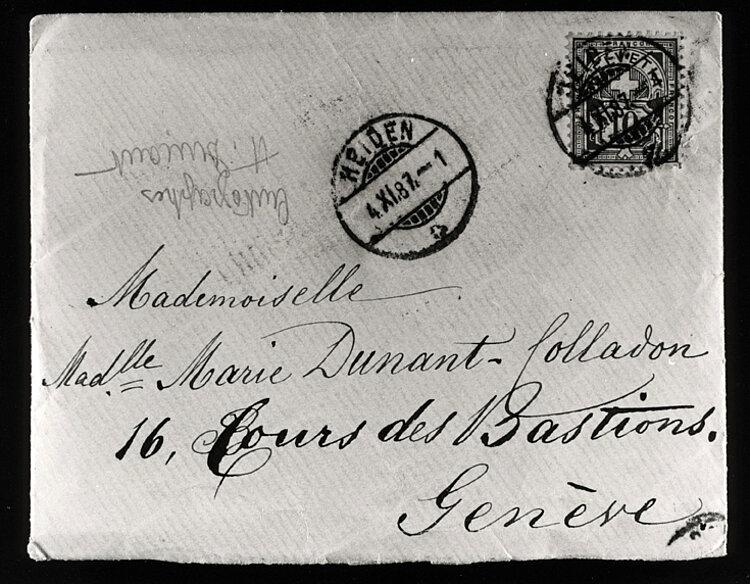 FRANCO
HELVETIA
10
HEIDEN
4.XI.87.–1
Autographes
H. Dunant
Mademoiselle
Mad.lle Marie Dunant-Colladon
16, Cours des Bastions.
Genève